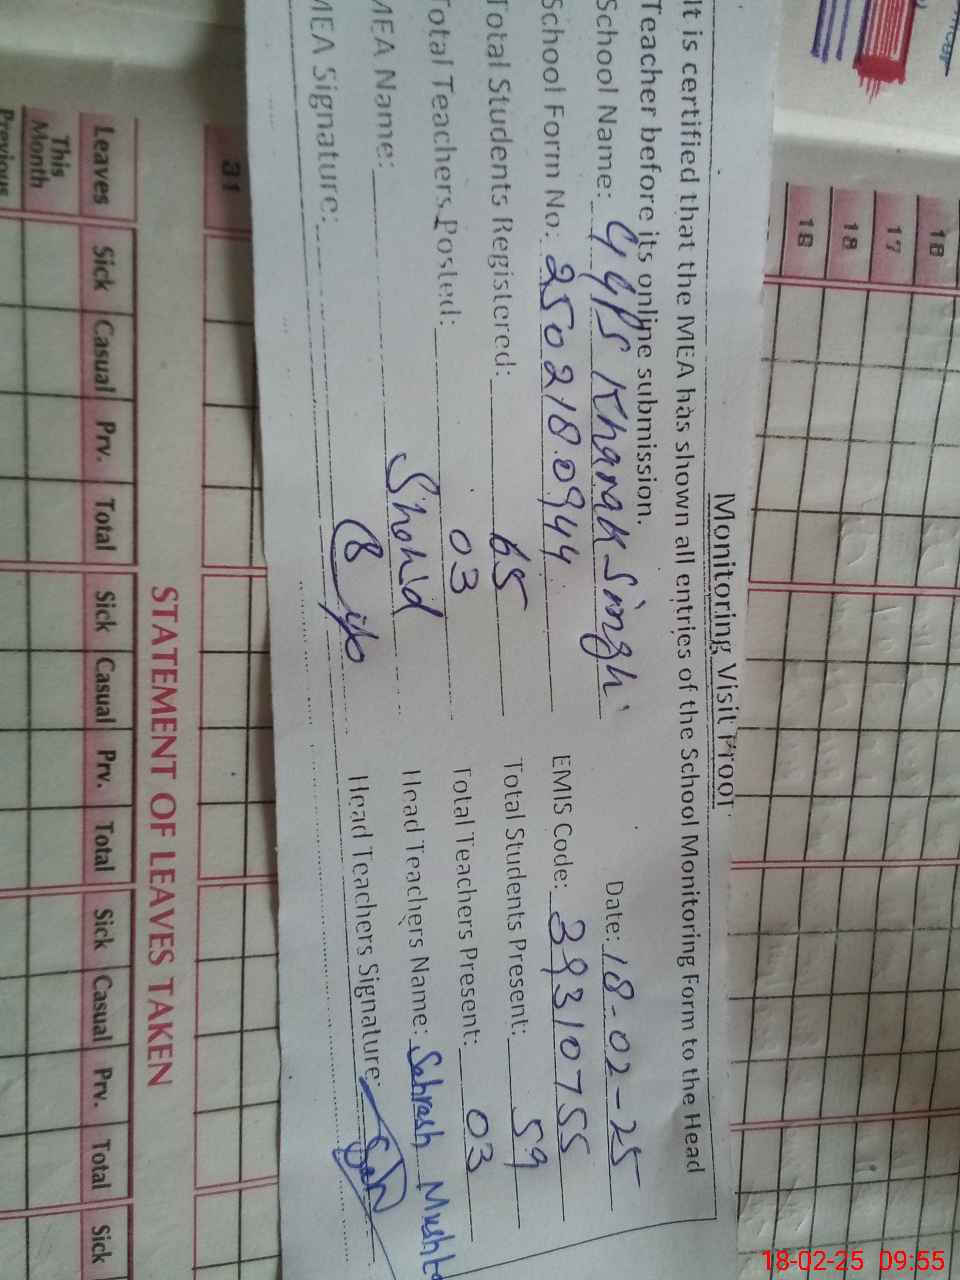 Monitoring Visit Proof
It is certified that the MEA has shown all entries of the School Monitoring Form to the Head
Teacher before its online submission.
Date: 18-02-25
School Name: GGPS Kharak Singh
School Form No: 2502180944 EMIS Code: 39310755
Total Students Registered: 65 Total Students Present: 59
Total Teachers Posted: 03 Total Teachers Present: 03
MEA Name: Shahid Head Teachers Name: Sehrash Musht
MEA Signature: Head Teachers Signature:
16
17
18
18
31
STATEMENT OF LEAVES TAKEN
Leaves Sick Casual Prv. Total Sick Casual Prv. Total Sick Casual Prv. Total Sick
This Month
Previous
18-02-25 09:55